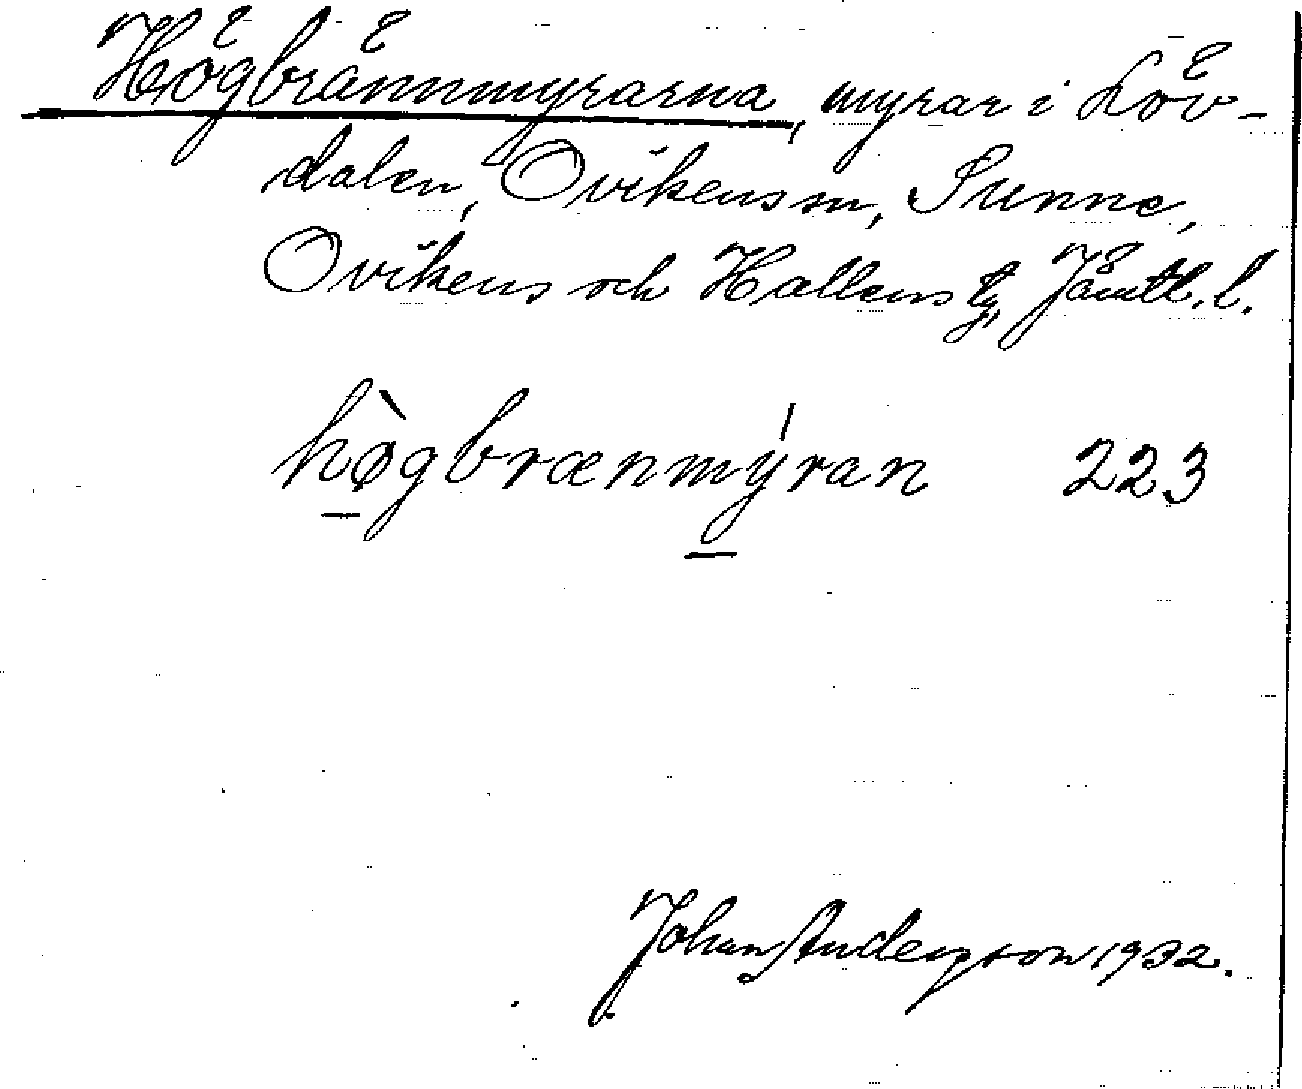 Högbrännmyrarna, myrar i Löv-
dalen, Ovikens sn, Sunne,
Ovikens och Hallens tg, Jämtl. l.
hø̀gbrænmýran 223
Johan Andersson 1932.